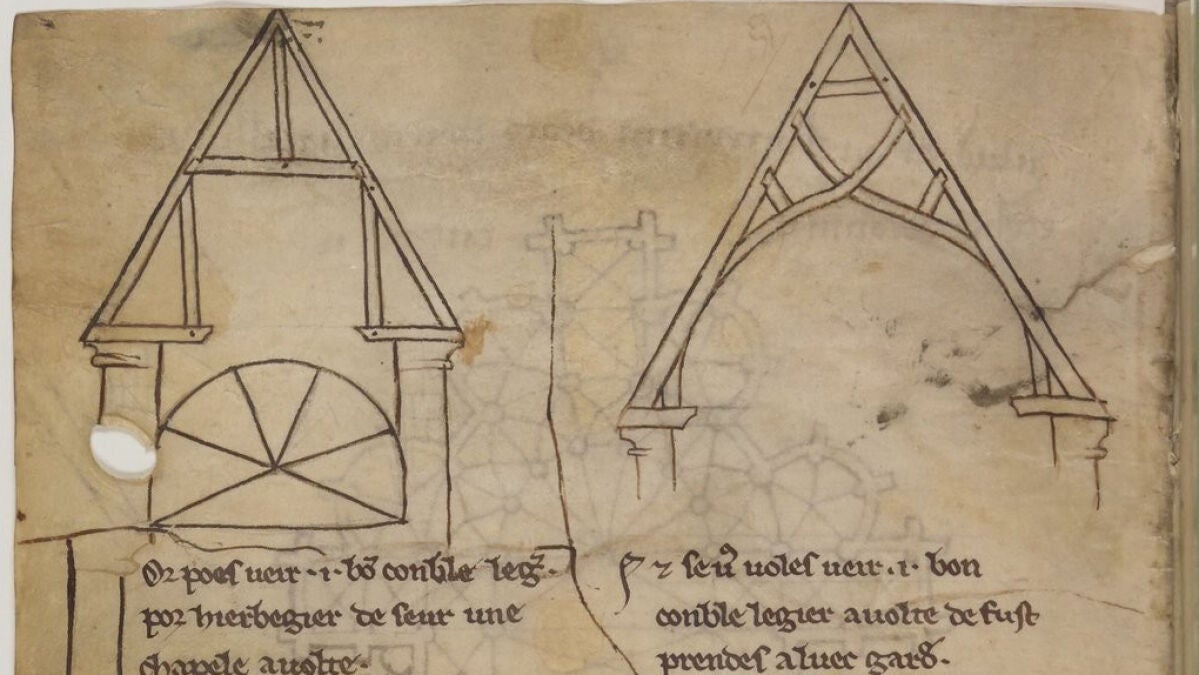 Or poes veir · i · bō conble legᵉ̄ ·
por hierbegier de seur une
chapele a volte ·
⁊ se vͦ volés veir . i . bon
conble legier a volte de fust
prendes aluec gard̄ ·